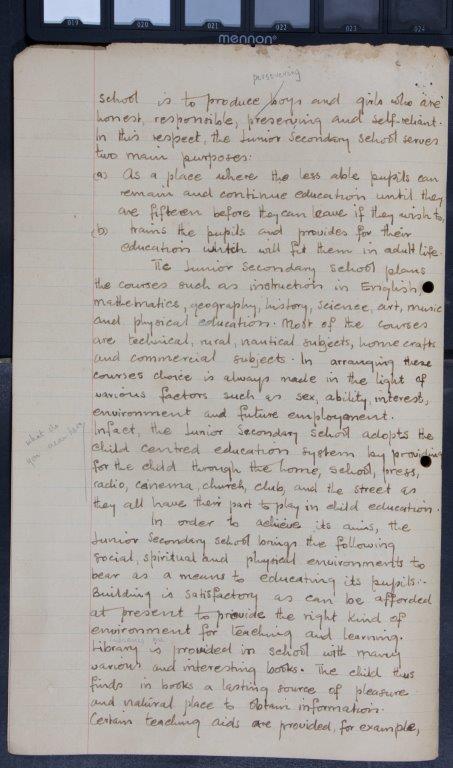 019 020 021 022 023 024
mennon
persevering
school is to produce boys and girls who are
honest, responsible, preserving and self-reliant.
In this respect, the Junior Secondary school serves
two main purposes:
(a) As a place where the less able pupils can
remain and continue education until they
are fifteen before they can leave if they wish to,
(b) trains the pupils and provides for their
education which will fit them in adult life.
The Junior Secondary School plans
the courses such as instruction in English,
mathematics, geography, history, science, art, music
and physical education. Most of the courses
are technical, rural, nautical subjects, home crafts
and commercial subjects. In arranging these
courses choice is always made in the light of
various factors such as sex, ability, interest,
environment and future employment.
Infact, the Junior Secondary School adopts the
what do
you mean here
child centred education system by providing
for the child through the home, school, press,
radio, cinema, church, club, and the street as
they all have their part to play in child education.
In order to achieve its aims, the
Junior Secondary school brings the following
social, spiritual and physical environments to
bear as a means to educating its pupils:-
Building is satisfactory as can be afforded
at present to provide the right kind of
environment for teaching and learning.
Library is provided in school with many
various and interesting books. The child thus
finds in books a lasting source of pleasure
and natural place to obtain information.
Certain teaching aids are provided, for example,